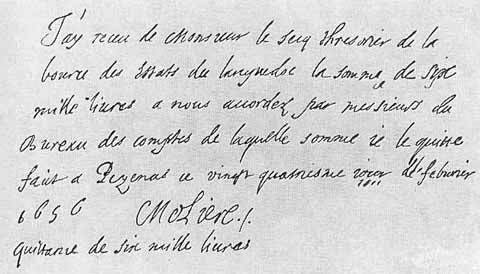 J'ay receu de Monsieur le Secq thresorier de la
bource des Estats du languedoc la somme de six
mille liures a nous accordez par messieurs du
Bureau des comptes de laquelle somme ie le quitte
faict a Pezenas ce vingt quatriesme iour de feburier
1656 Moliere
quittance de six mille liures